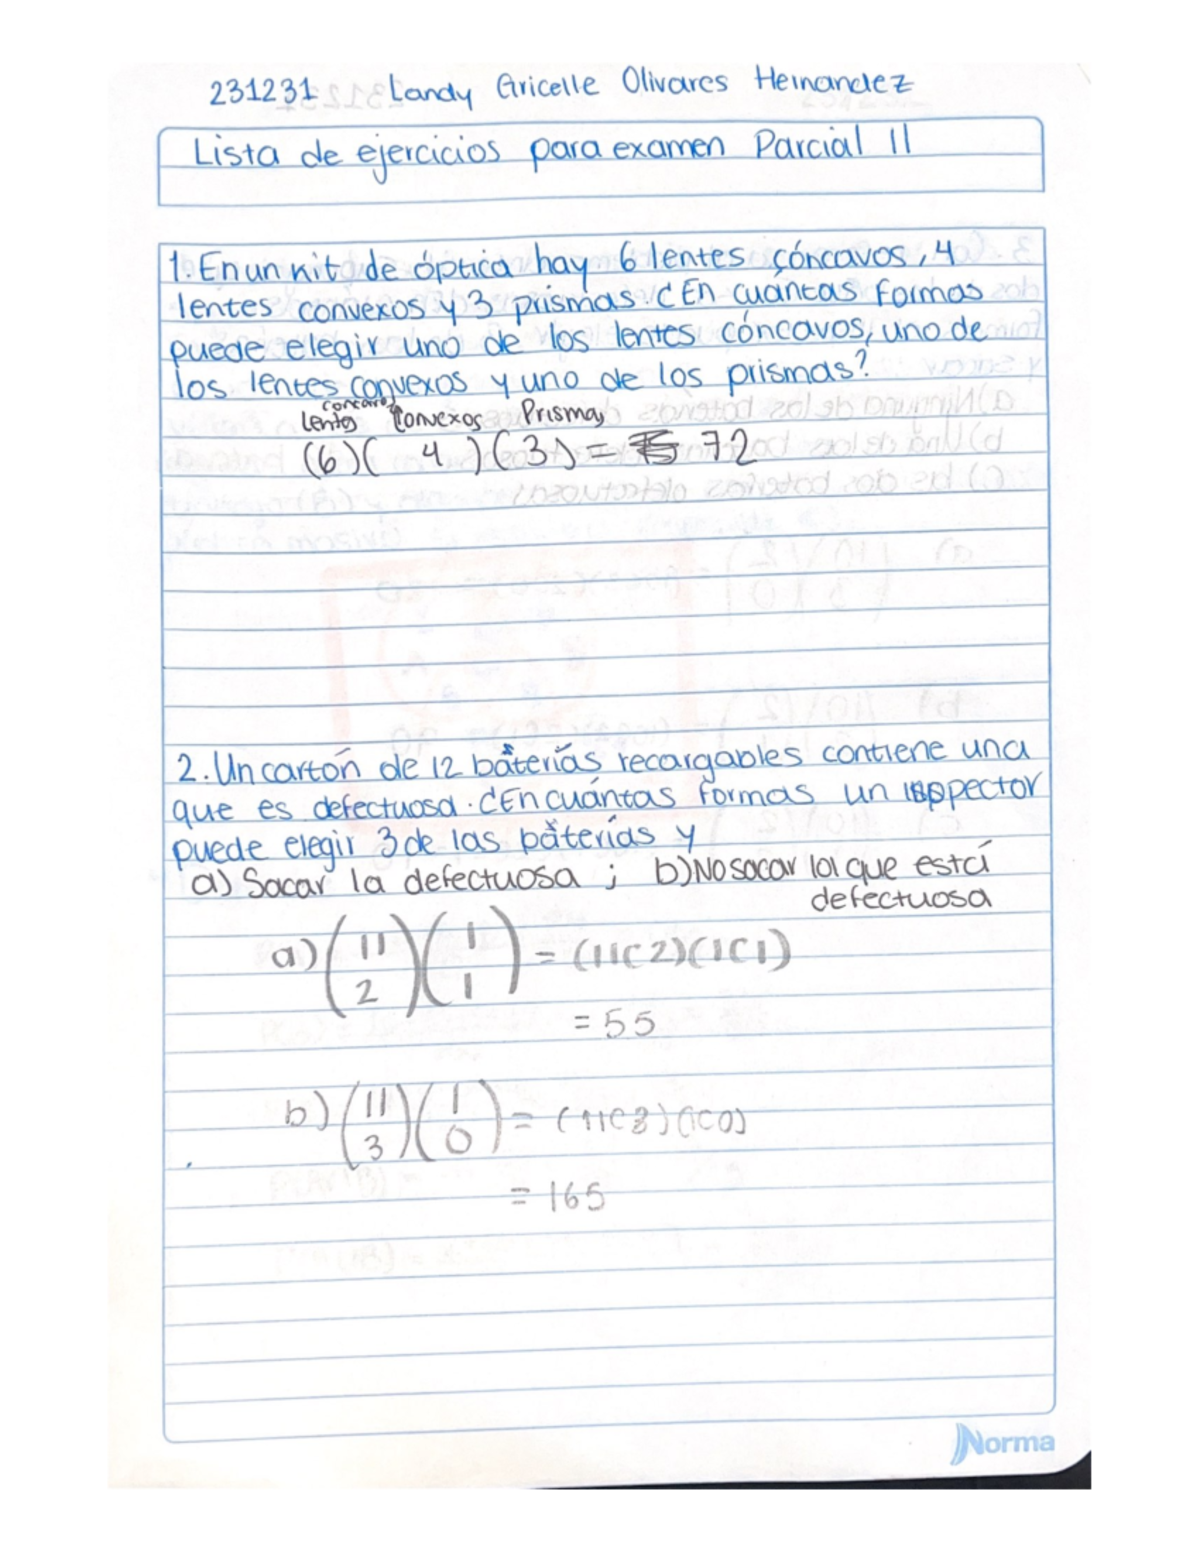 231231 Landy Gricelle Olivares Hernandez
Lista de ejercicios para examen Parcial II
1. En un kit de óptica hay 6 lentes cóncavos, 4
lentes convexos y 3 prismas. ¿En cuántas formas
puede elegir uno de los lentes cóncavos, uno de
los lentes convexos y uno de los prismas?
concavos
lentes convexos Prismas
(6)( 4 )(3) = 72
2. Un cartón de 12 baterías recargables contiene una
que es defectuosa. ¿En cuántas formas un inspector
puede elegir 3 de las baterías y
a) Sacar la defectuosa ; b) No sacar la que está
defectuosa
a) (11 2)(1 1) = (11C2)(1C1)
= 55
b) (11 3)(1 0) = (11C3)(1C0)
= 165
Norma